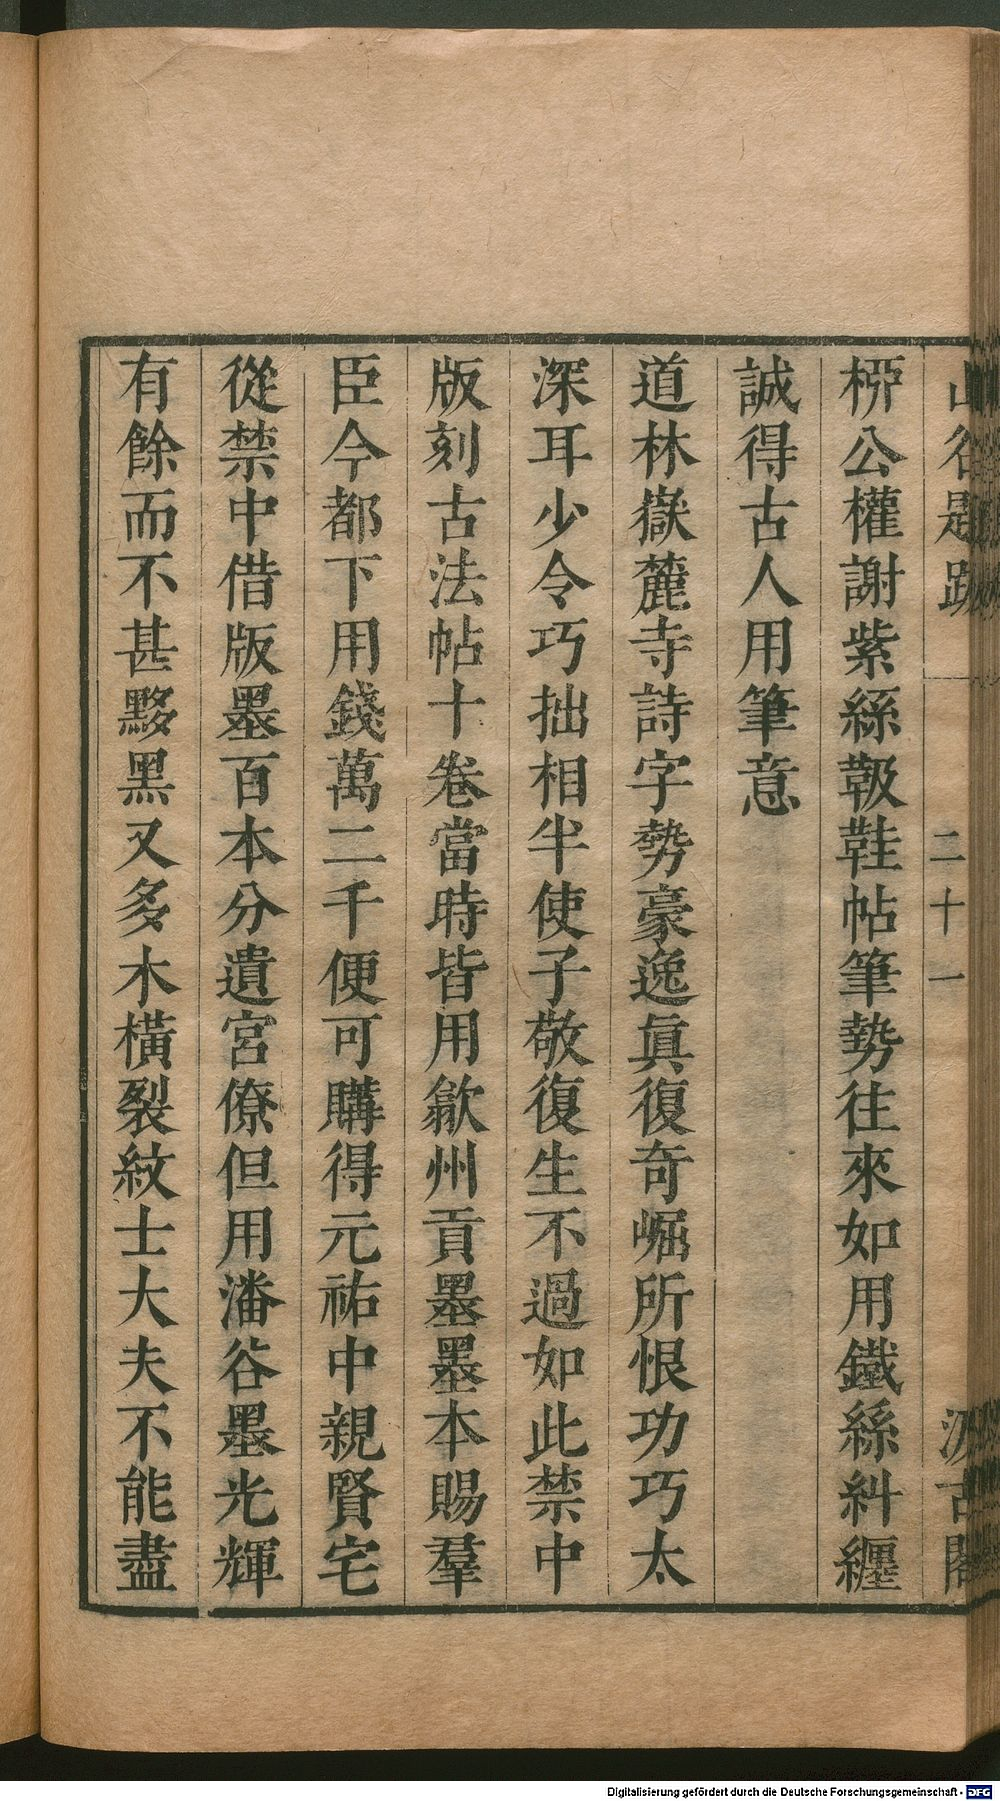 山谷題跋 二十一 汲古閣
桺公權謝紫絲靸鞋帖筆勢往來如用鐵絲糾纒
誠得古人用筆意
道林嶽麓寺詩字勢豪逸眞復奇崛所恨功巧太
深耳少令巧拙相半使子敬復生不過如此禁中
版刻古法帖十卷當時皆用歙州貢墨墨本賜羣
臣今都下用錢萬二千便可購得元祐中親賢宅
從禁中借版墨百本分遺宮僚但用潘谷墨光輝
有餘而不甚黟黑又多木橫裂紋士大夫不能盡
Digitalisierung gefördert durch die Deutsche Forschungsgemeinschaft - DFG